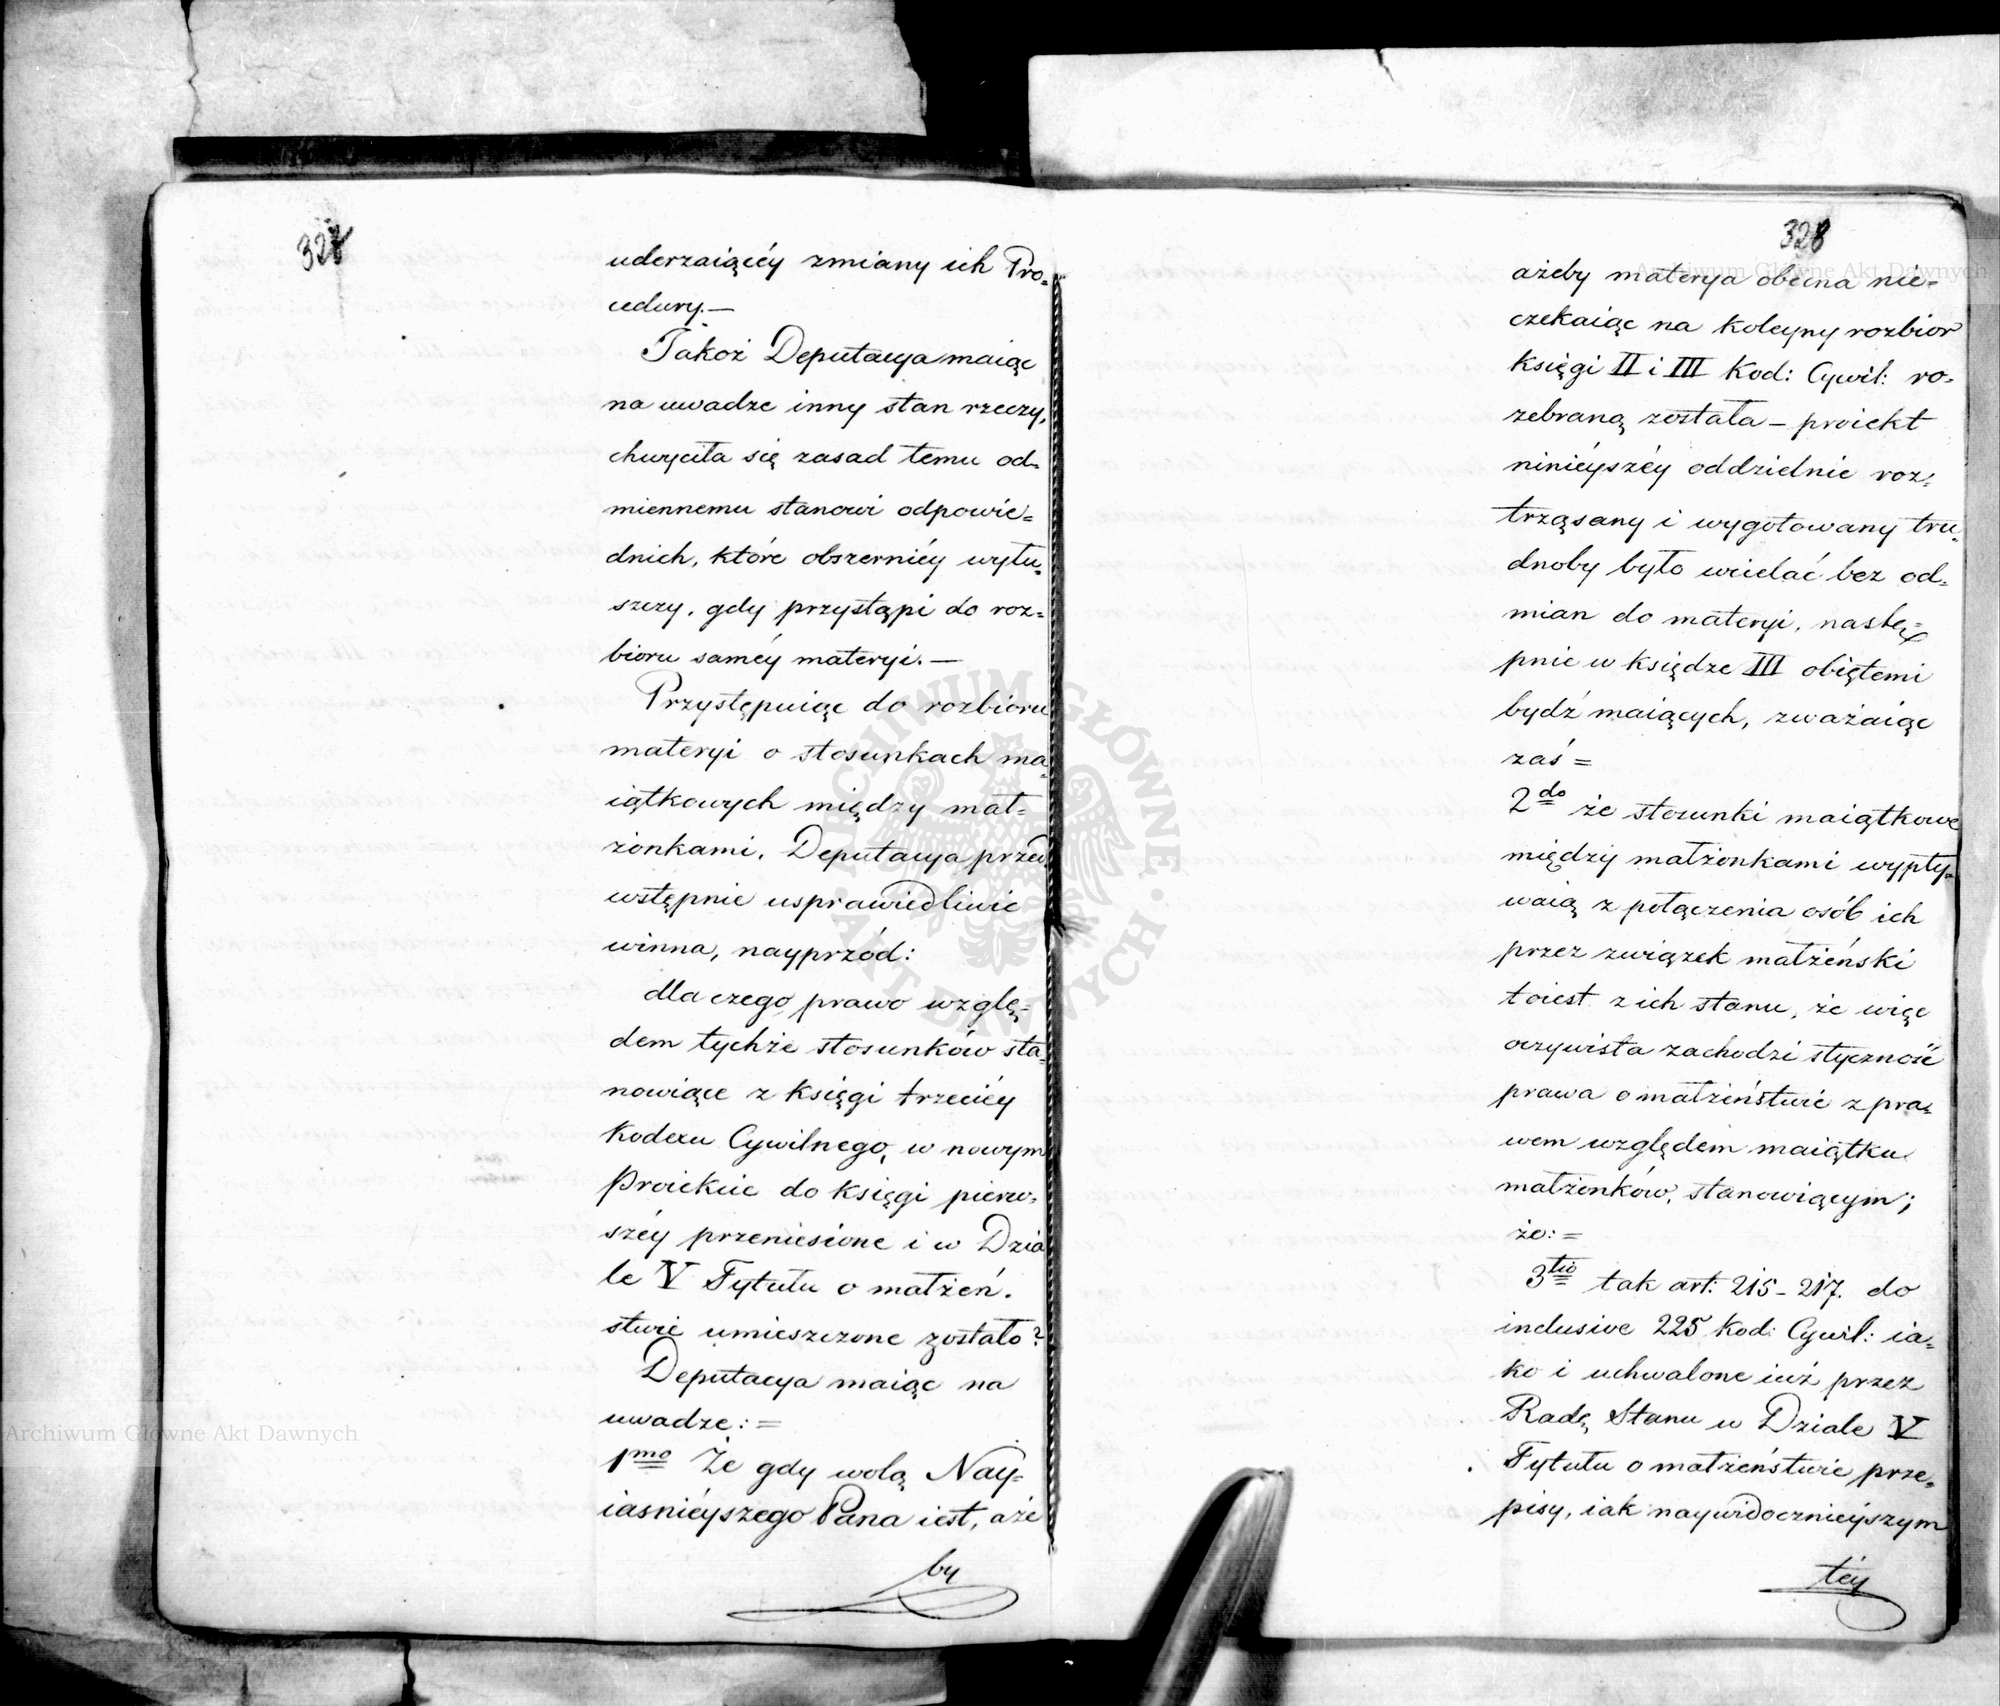 327
uderzaiącéy zmiany ich Pro=
cedury.—
Jakoż Deputacya maiąc
na uwadze inny stan rzeczy,
chwyciła się zasad temu od=
miennemu stanowi odpowie=
dnich, które obszerniéy wyłu=
szczy, gdy przystąpi do roz=
bioru saméy materyi.—
Przystępuiąc do rozbioru
materyi o stosunkach ma=
iątkowych między mał=
żonkami, Deputacya przed
wstępnie usprawiedliwić
winna, nayprzód:
dla czego prawo wzglę=
dem tychże stosunków sta=
nowiące z księgi trzeciéy
Kodexu Cywilnego, w nowym
Proiekcie do księgi pierw=
széy przeniesione i w Dzia
le V Tytułu o małżeń=
stwie umieszczone zostało?
Deputacya maiąc na
uwadze:=
1mo Że gdy wolą Nay=
iaśnieyszego Pana iest, aże
by
328
ażeby materya obecna nie=
czekaiąc na koleyny rozbior
księgi II i III Kod: Cywil: ro=
zebraną została – proiekt
ninieyszéy oddzielnie roz=
trząsany i wygotowany tru=
dnoby było wcielać bez od=
mian do materyi, nastę=
pnie w księdze III obiętemi
bydź maiących, zważaiąc
zaś =
2do że stosunki maiątkowe
między małżonkami wypły=
waią z połączenia osób ich
przez związek małżeński
toiest z ich stanu, że więc
oczywista zachodzi styczność
prawa o małżeństwie z pra=
wem względem maiątku
małżonków, stanowiącym;
że:=
3tio tak art: 215 – 217. do
inclusive 225 Kod: Cywil: ia=
ko i uchwalone iuż przez
Radę Stanu w Dziale V
Tytułu o małżeństwie prze=
pisy, iak naywidocznieyszym
téy
Archiwum Główne Akt Dawnych
Archiwum Główne Akt Dawnych
ARCHIWUM GŁÓWNE
AKT DAWNYCH